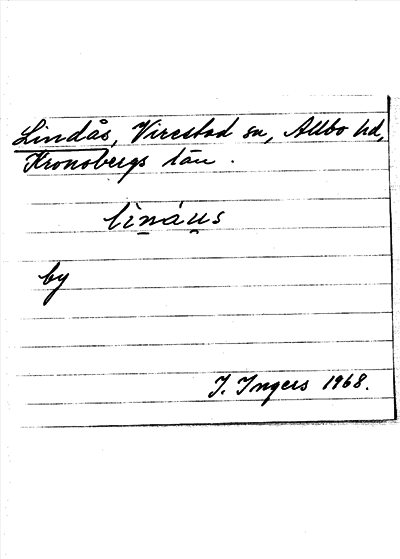 Lindås, Virestad sn, Allbo hd,
Kronobergs län.
lìnáus
by
I. Ingers 1968.